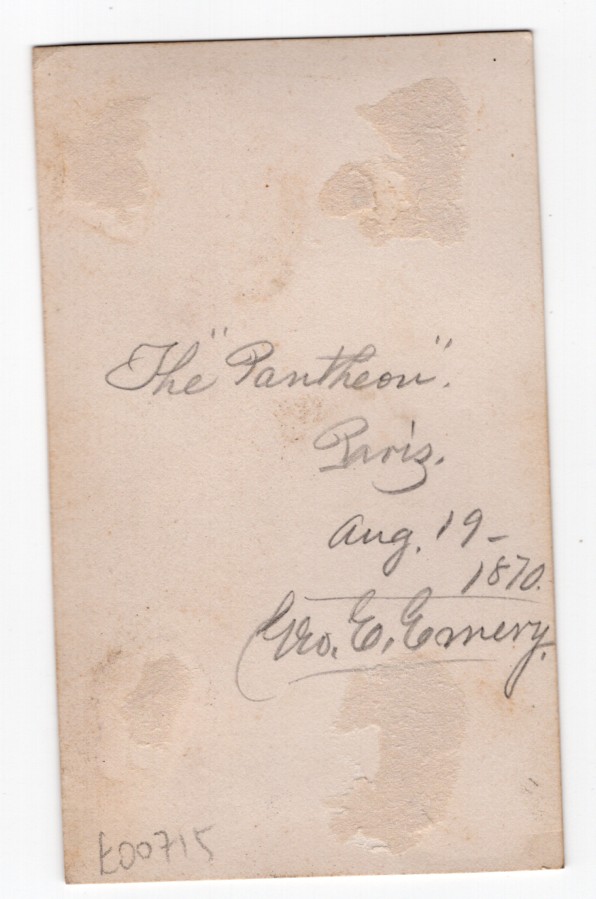 The "Pantheon".
Paris.
Aug. 19-
1870.
Geo. E. Emery.
E00715